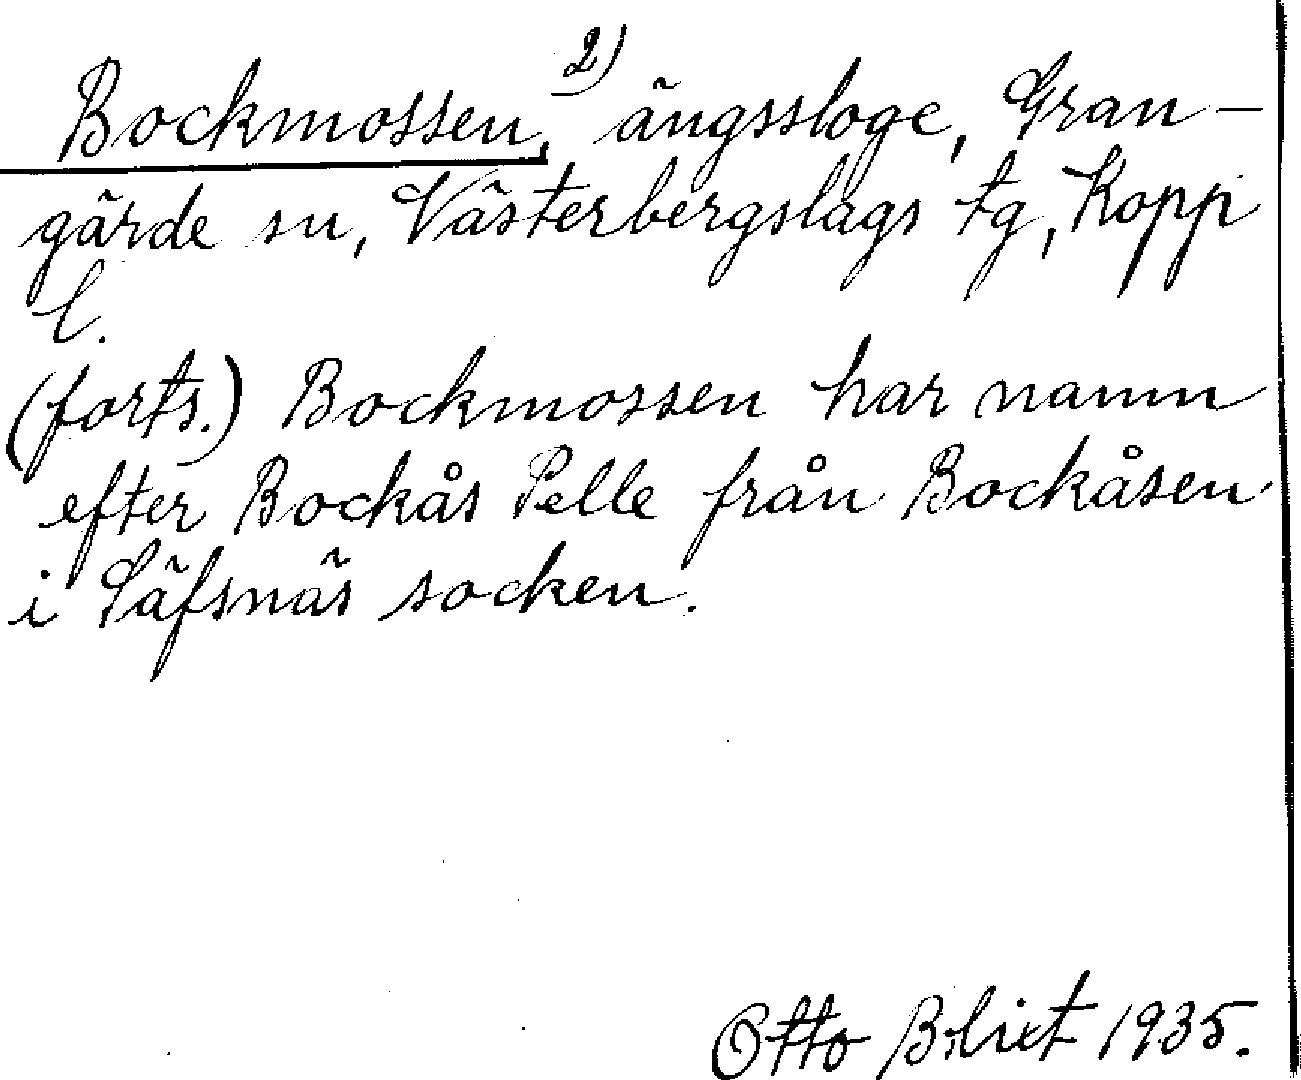 Bockmossen, 2) ängssloge, Gran-
gärde sn, Västerbergslags tg, Kopp
l.
(forts.) Bockmossen har namn
efter Bockås Pelle från Bockåsen
i Säfsnäs socken.
Otto Blixt 1935.